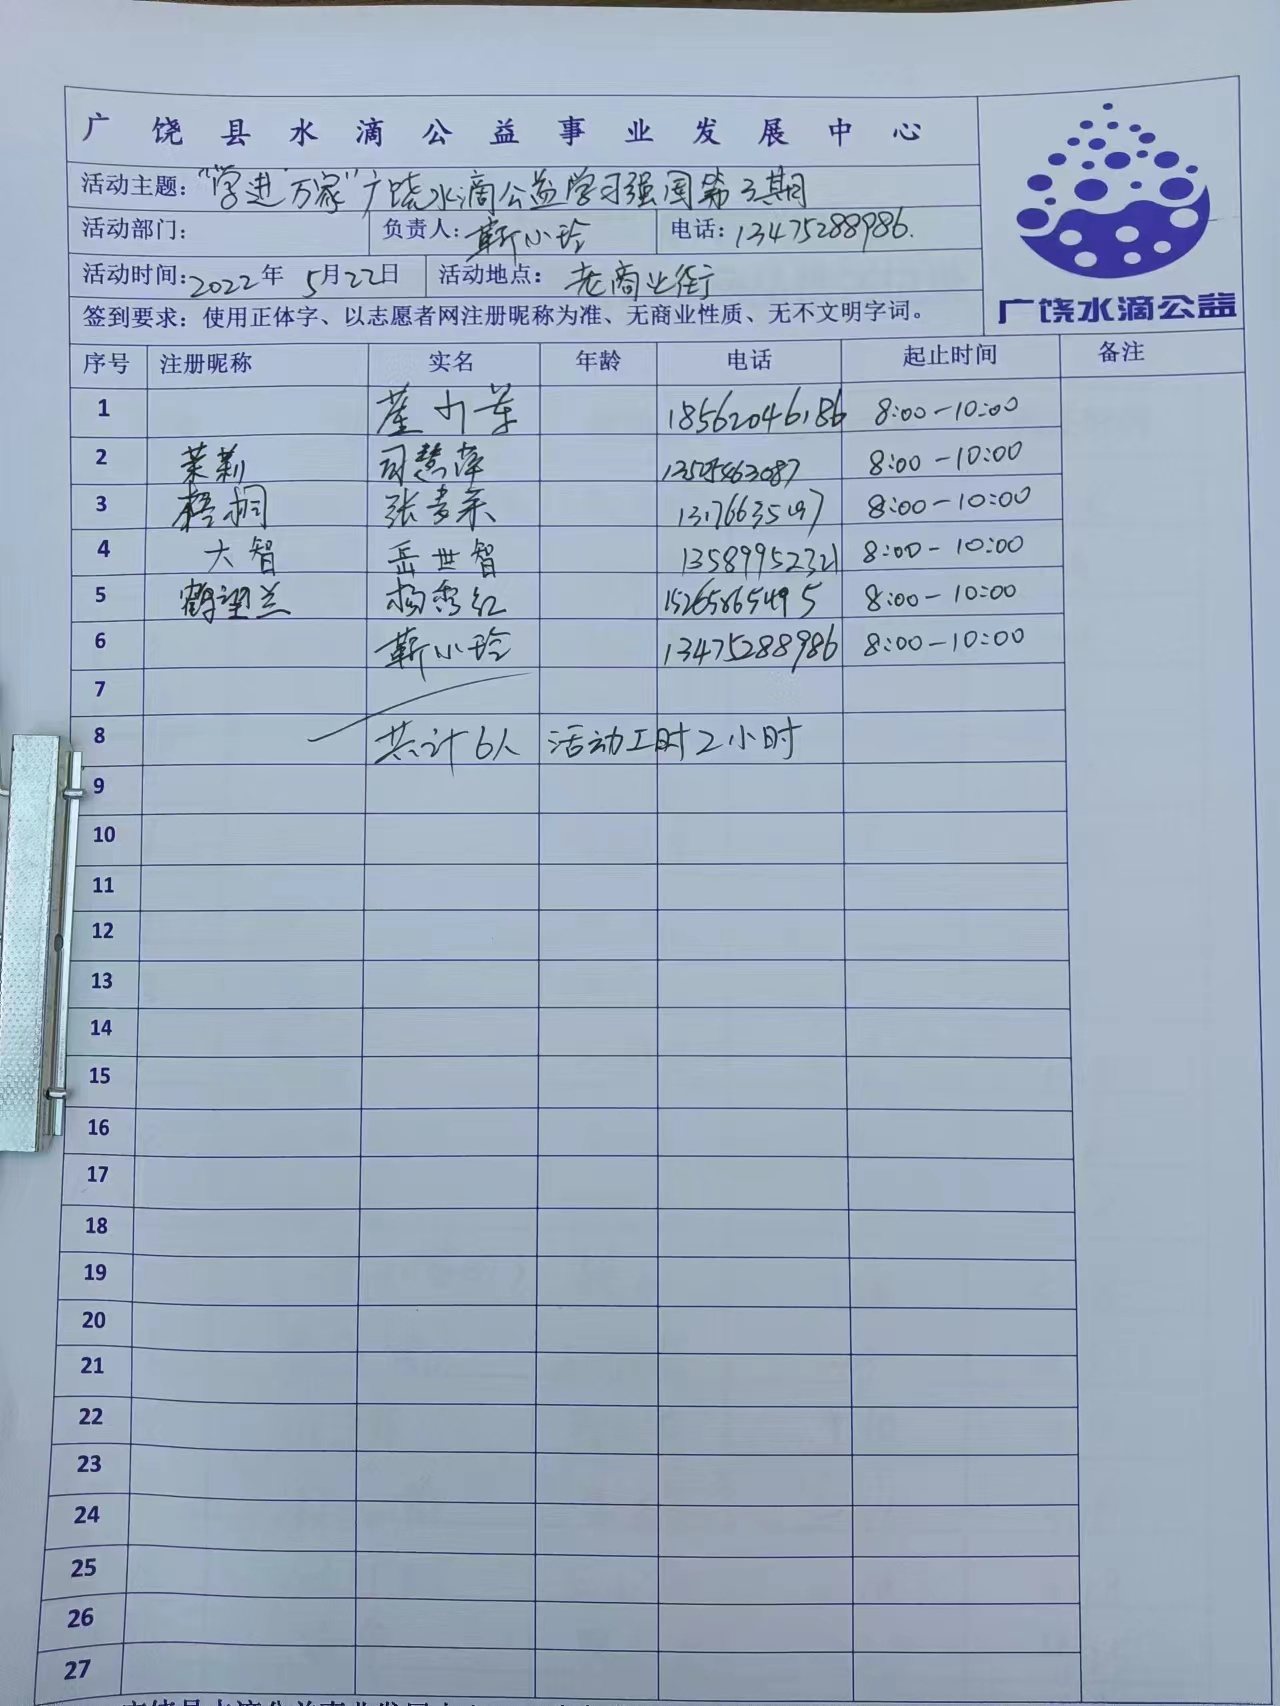 广饶县水滴公益事业发展中心
活动主题："学进万家"广饶水滴公益学习强国第三期
活动部门： 负责人：靳小玲 电话：13475288986.
活动时间：2022年5月22日 活动地点：老商业街
签到要求：使用正体字、以志愿者网注册昵称为准、无商业性质、无不文明字词。
广饶水滴公益
序号 注册昵称 实名 年龄 电话 起止时间 备注
1 18562046186 8:00-10:00
2 茉莉 司慧萍 8:00-10:00
3 梧桐 8:00-10:00
4 大智 岳世智 13589952321 8:00-10:00
5 鹤望兰 杨秀红 15265865495 8:00-10:00
6 靳小玲 13475288986 8:00-10:00
7
8 共计6人 活动工时2小时
9
10
11
12
13
14
15
16
17
18
19
20
21
22
23
24
25
26
27